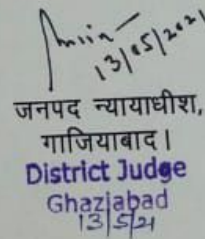 13/05/2021
जनपद न्यायाधीश,
गाजियाबाद।
District Judge
Ghaziabad
13/5/21